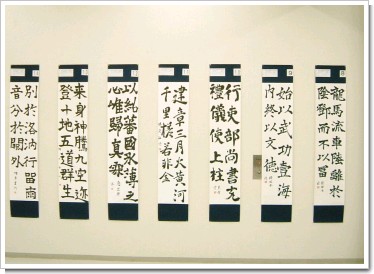 龍馬流車陸離於
鄧而不以富
始以武功壹海
内終以文德
行吏部尚書充
禮儀使上柱
建章三月火黄河
千里槎若非金
以純
國
薄之
心唯歸真
来身神騰九空迹
登十地五道群生
別於洛汭行留
音分於關外